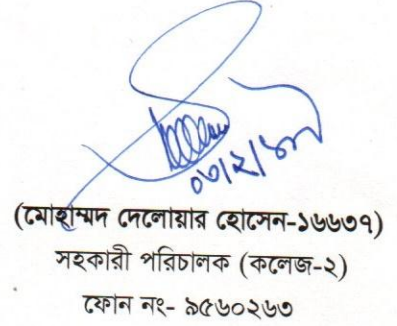 (মোহাম্মদ দেলোয়ার হোসেন-১৬৬৩৭)
সহকারী পরিচালক (কলেজ-২)
ফোন নং- ৯৫৬০২৬৩